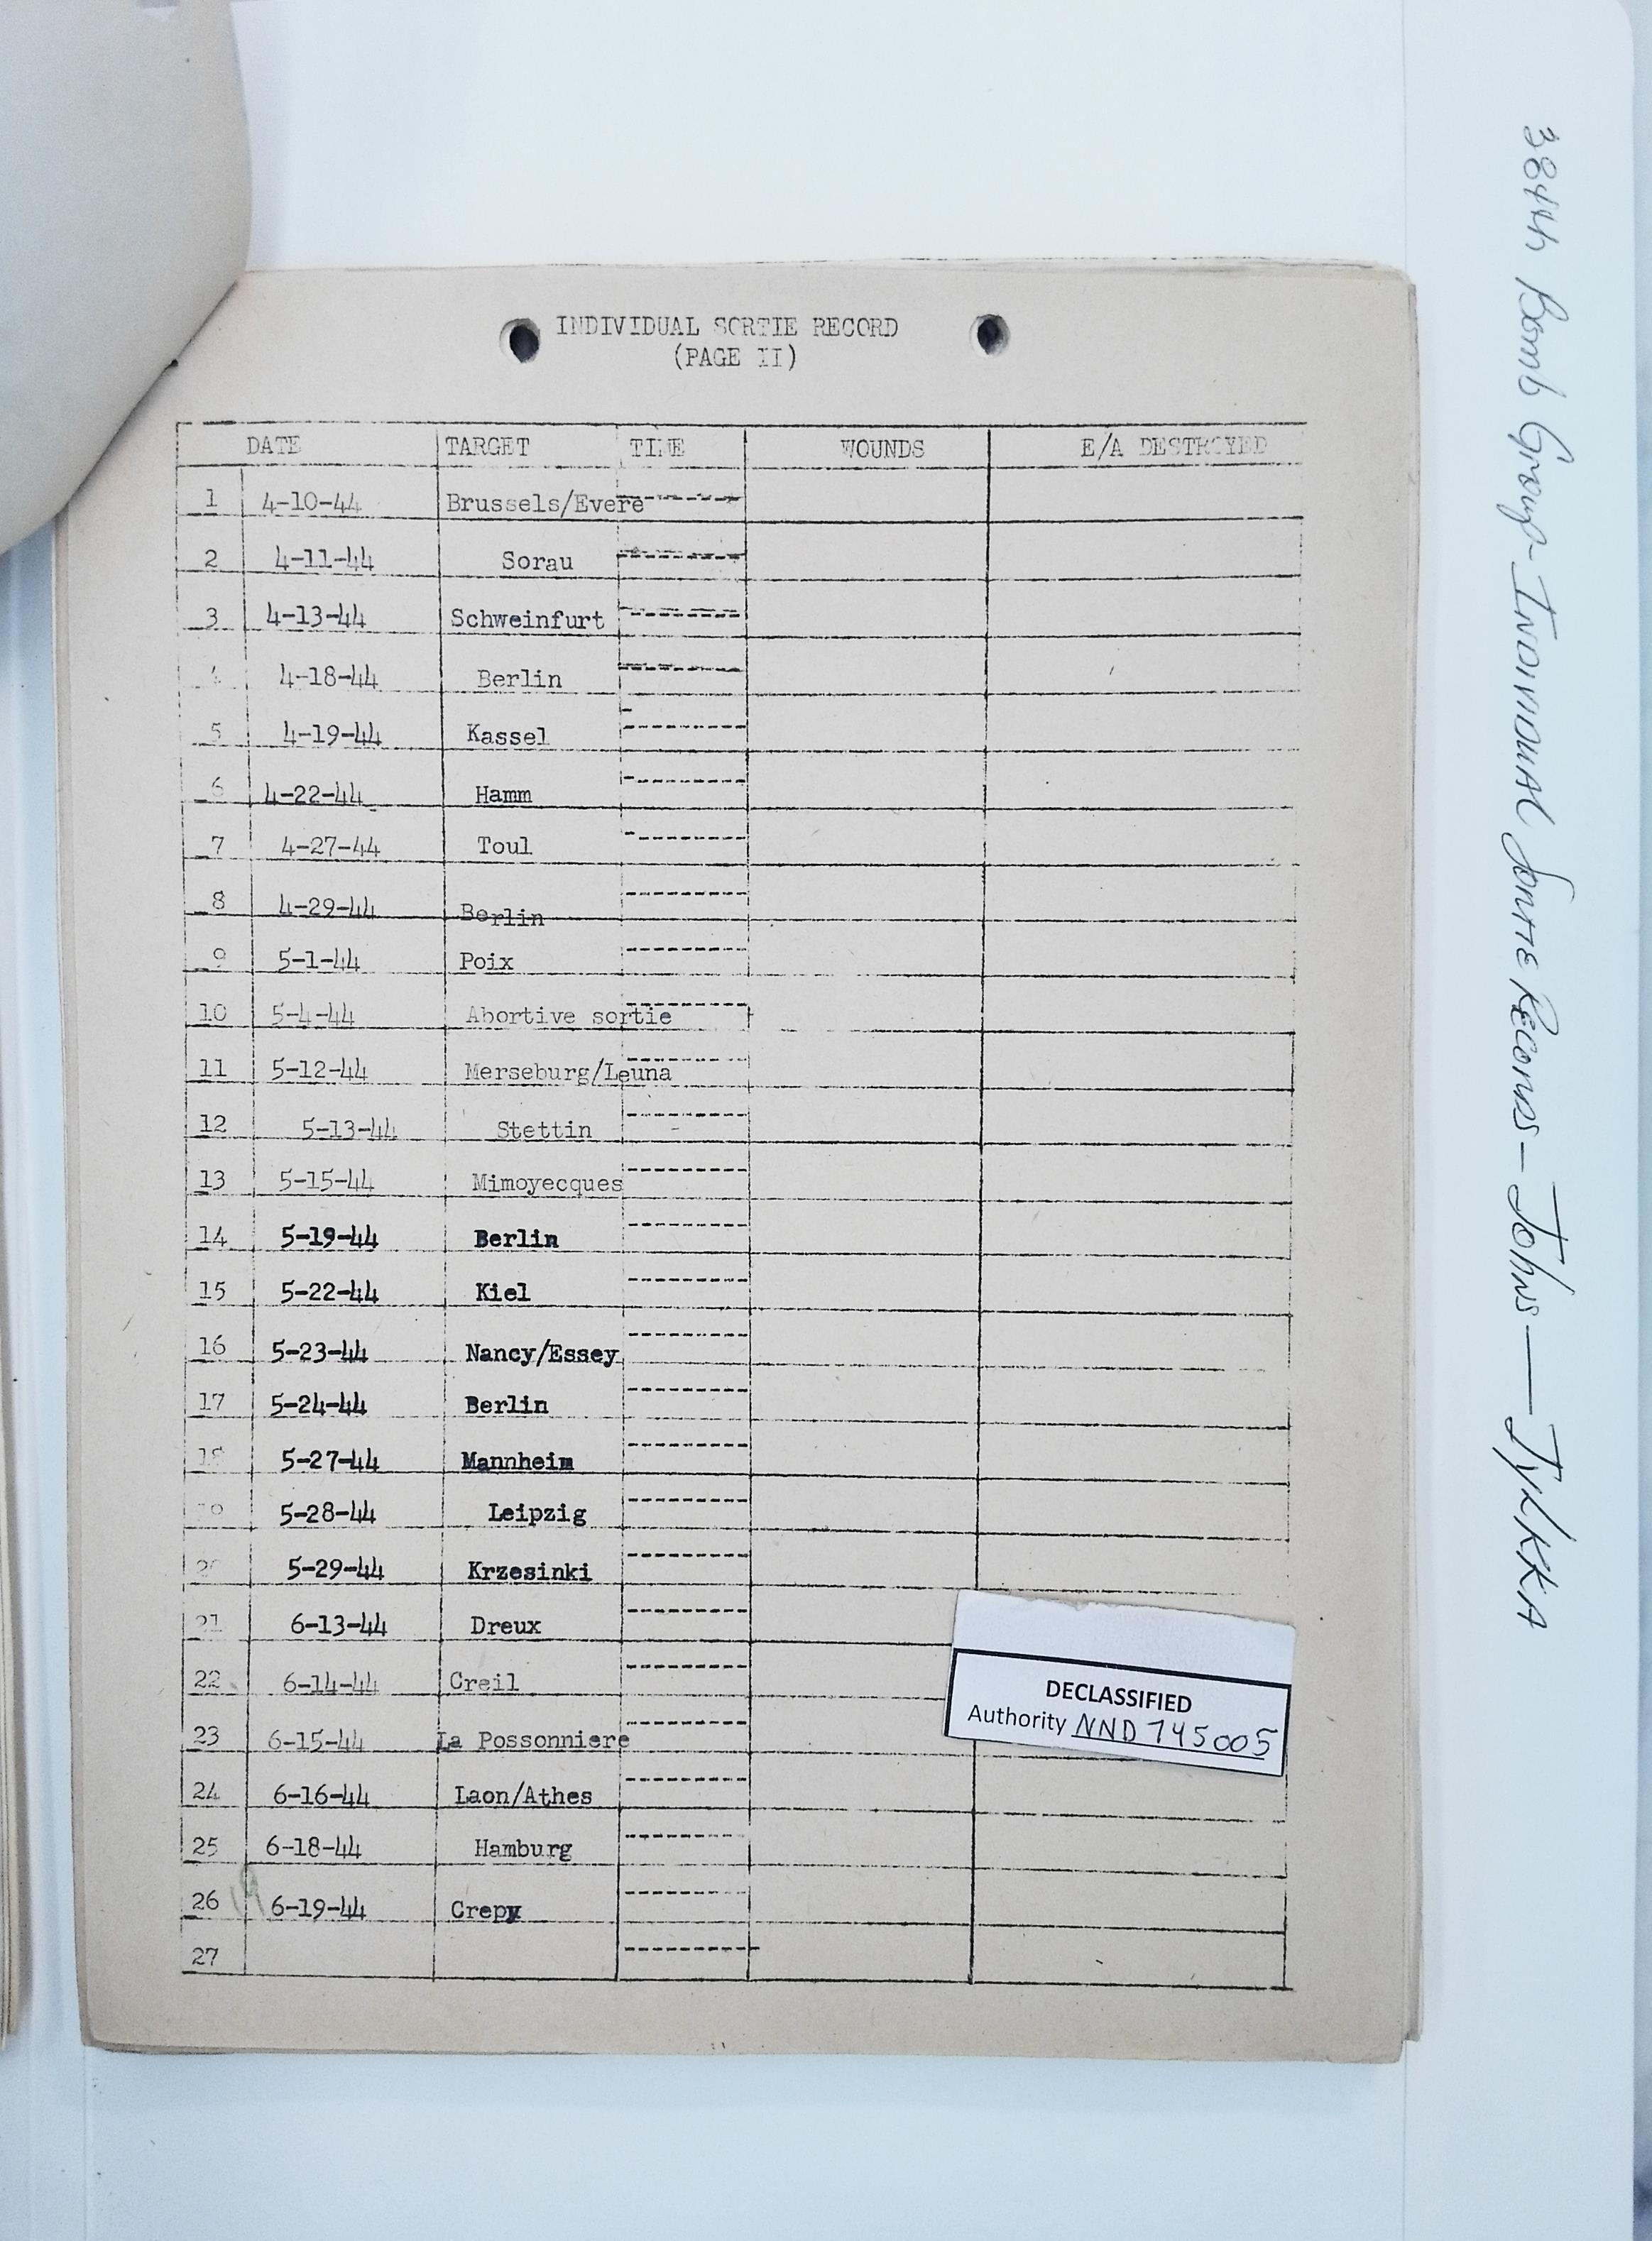 INDIVIDUAL SORTIE RECORD
(PAGE II)
DATE TARGET TIME WOUNDS E/A DESTROYED
1 4-10-44 Brussels/Evere ---------
2 4-11-44 Sorau ---------
3 4-13-44 Schweinfurt ---------
4 4-18-44 Berlin ---------
5 4-19-44 Kassel ---------
6 4-22-44 Hamm ---------
7 4-27-44 Toul ---------
8 4-29-44 Berlin ---------
9 5-1-44 Poix ---------
10 5-4-44 Abortive sortie ---------
11 5-12-44 Merseburg/Leuna ---------
12 5-13-44 Stettin ---------
13 5-15-44 Mimoyecques ---------
14 5-19-44 Berlin ---------
15 5-22-44 Kiel ---------
16 5-23-44 Nancy/Essey ---------
17 5-24-44 Berlin ---------
18 5-27-44 Mannheim ---------
19 5-28-44 Leipzig ---------
20 5-29-44 Krzesinki ---------
21 6-13-44 Dreux ---------
22 6-14-44 Creil ---------
23 6-15-44 La Possonniere ---------
24 6-16-44 Laon/Athes ---------
25 6-18-44 Hamburg ---------
26 6-19-44 Crepy ---------
27 ----------
DECLASSIFIED
Authority NND 745005
384th Bomb Group - INDIVIDUAL Sortie Records - Johns - TylKKA